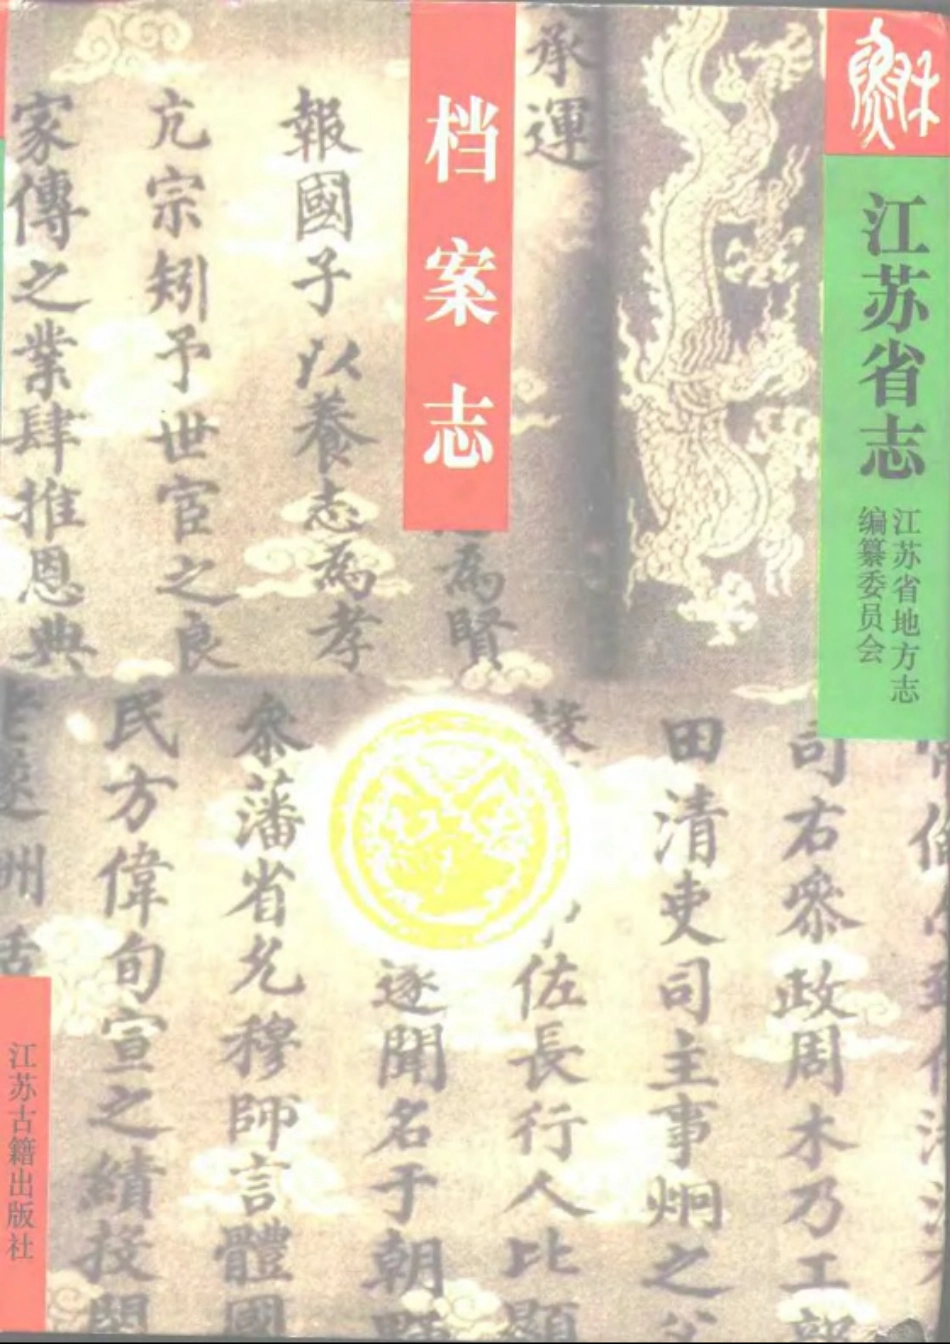 江苏省志
江苏省地方志
编纂委员会
档案志
承運
為賢
報國子以養志為孝
亢宗矧予世官之良
家傳之業肆推恩典
司右參政周木乃工
田清吏司主事炯之
佐長行人比顯
逐聞名于朝
叅藩省允穆師言體國
民方偉旬宣之績投閒
江苏古籍出版社